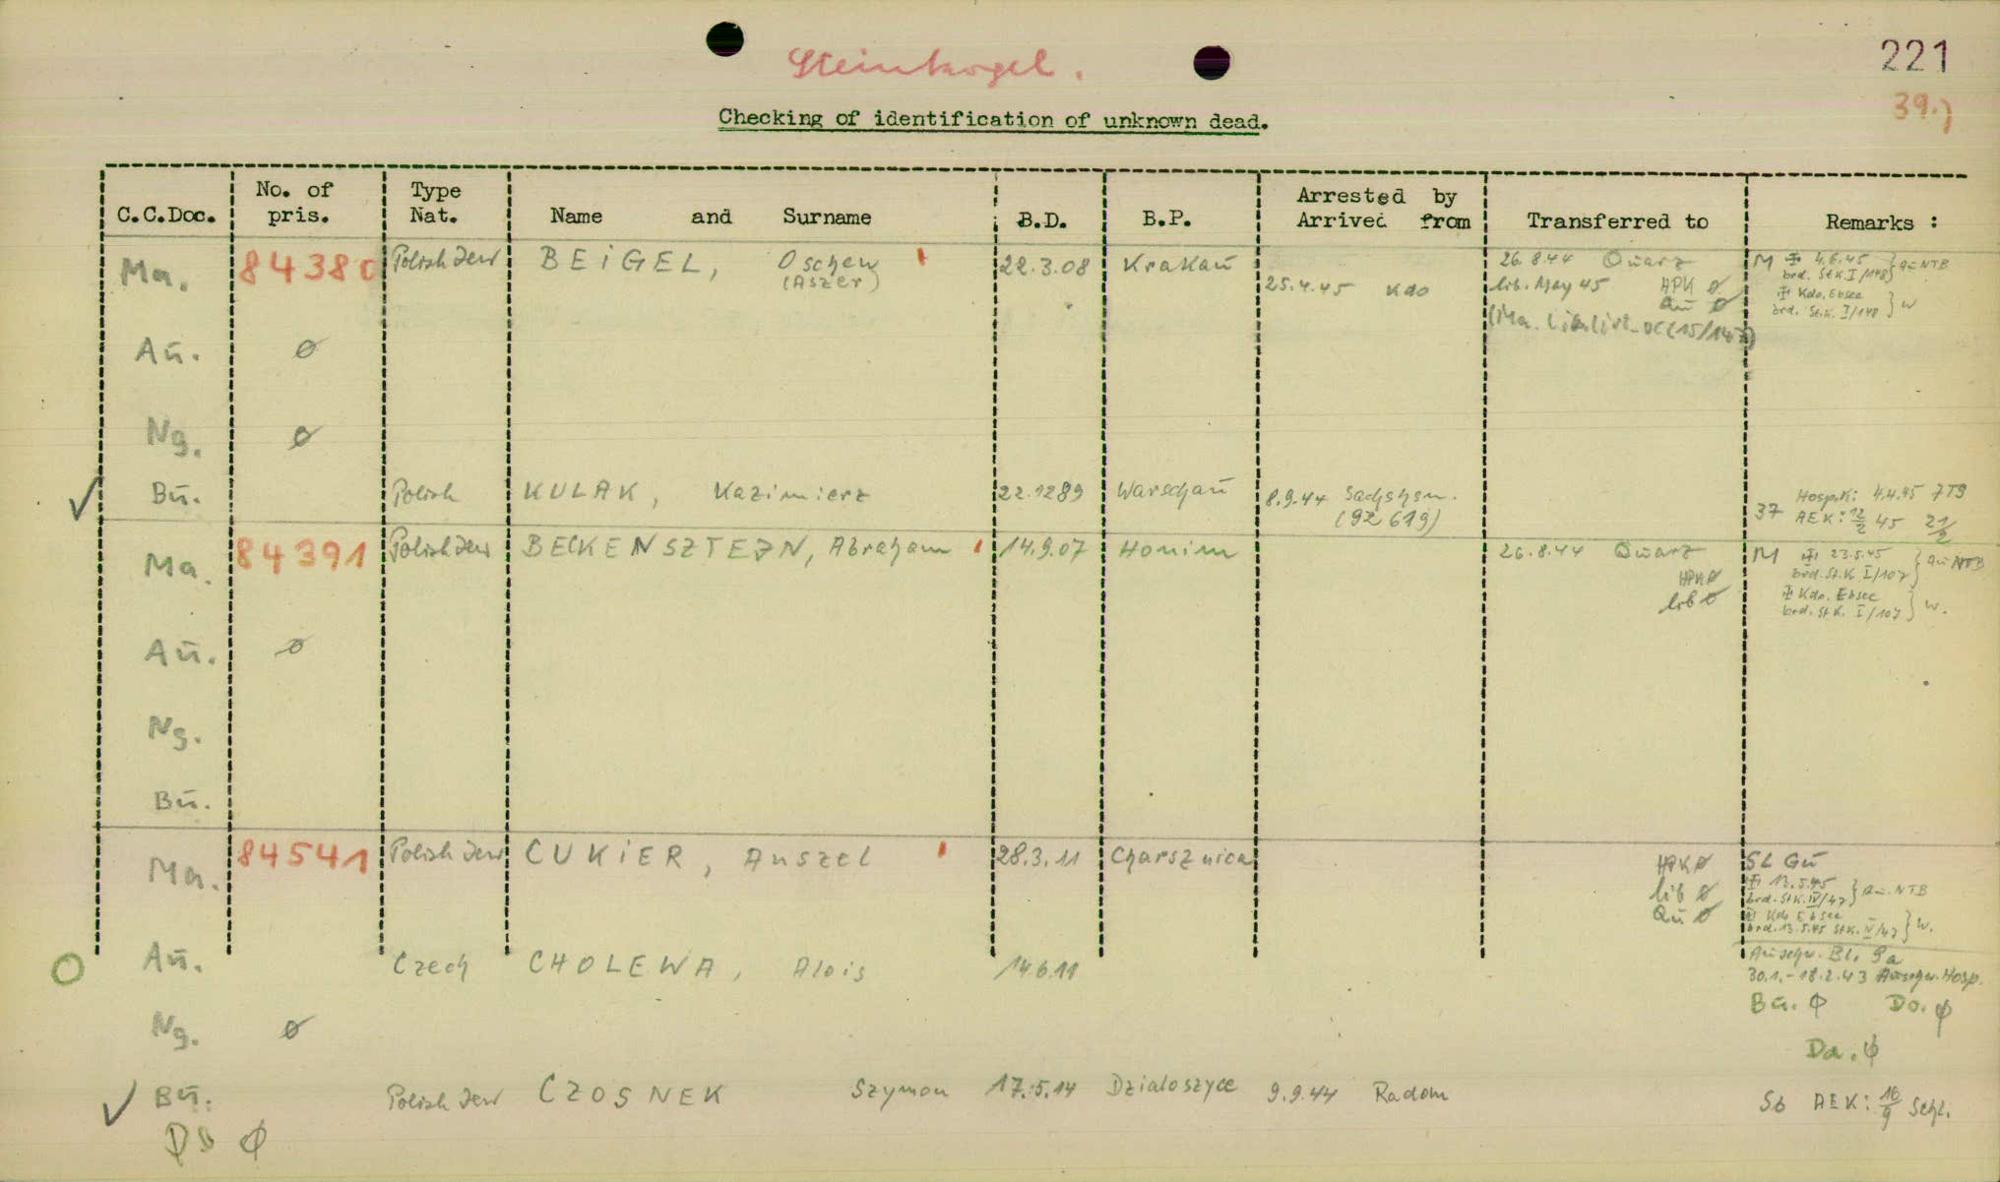 Steinkogel.
221
39.)
Checking of identification of unknown dead.
C.C.Doc. No. of pris. Type Nat. Name and Surname B.D. B.P. Arrested by Arrived from Transferred to Remarks :
Ma. 84380 Polish Jew BEiGEL, Oscher (Aszer) 22.3.08 Krakau 25.4.45 Kdo 26.8.44 Quarz
lib. May 45 HPK ø
Qu ø
(Ma. Lib. list OCC 15/147)
M 4.6.45
brd. St.K. I/148 } Au NTB
Kdo. Ebsee
brd. St.K. I/148 } W
Au. ø
Ng. ø
✓ Bu. Polish KULAK, Kazimierz 22.12.89 Warschau 8.9.44 Sachshsn. (92 619)
37 Hosp.K: 4.4.45 7TS
AEK: 12/2 45 21/2
Ma. 84391 Polish Jew BECKENSZTEJN, Abraham 14.9.07 Honim 26.8.44 Quarz
HPK ø
lib ø
M 23.5.45
brd. St.K. I/107 } Au NTB
Kdo. Ebsee
brd. St.K. I/107 } W.
Au. ø
Ng.
Bu.
Ma. 84541 Polish Jew CUKiER, Anszel 28.3.11 Charsznica
HPK ø
lib ø
Qu ø
SL Gu
13.5.45
brd. St.K. IV/47 } Au. NTB
Kdo Ebsee
brd. 13.5.45 St.K. IV/47 } W.
Au. Czech CHOLEWA, Alois 14.6.11
Auschw. Bl. 9a
30.1.-18.2.43 Auschw. Hosp.
Bu. ø Do. ø
Da. ø
Ng. ø
✓ Bu. Polish Jew CZOSNEK Szymon 17.5.14 Dzialoszyce 9.9.44 Radom
AEK: 16/9 Schl.
ø